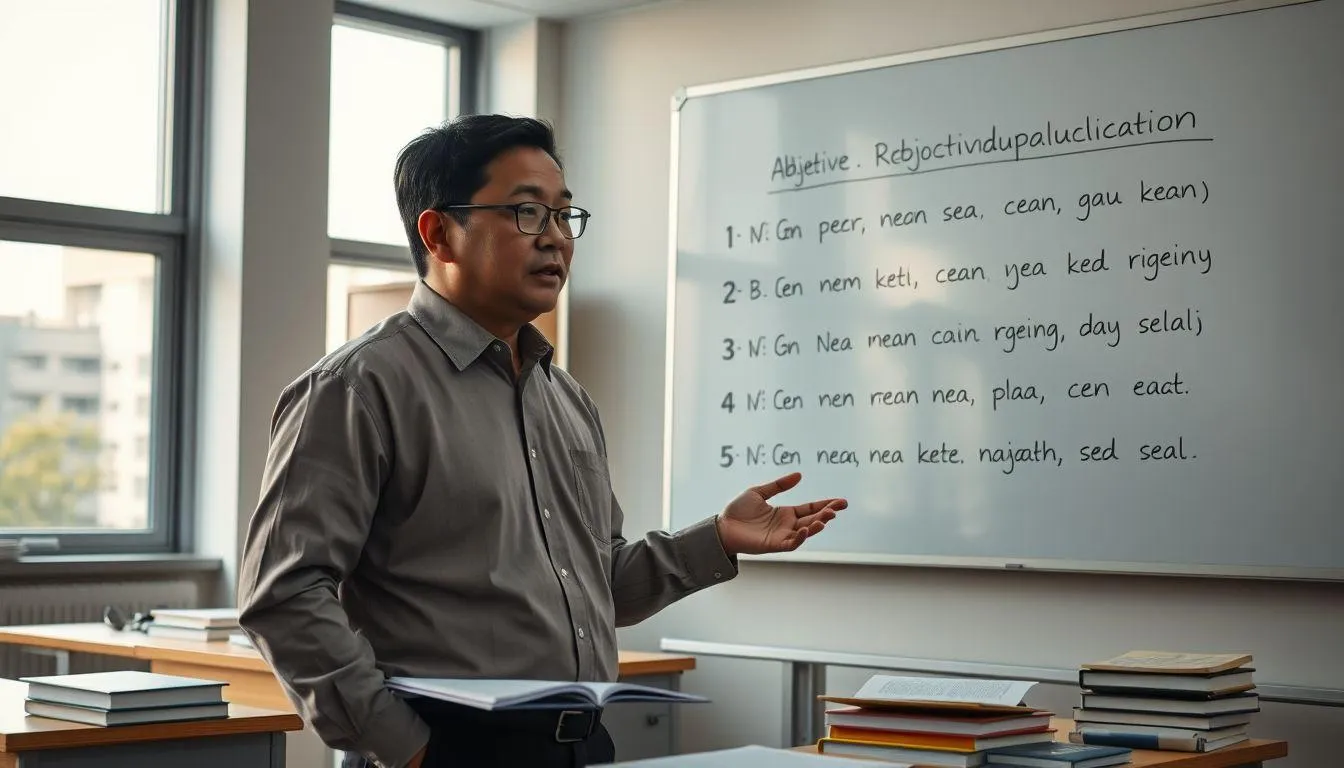 Abjetive. Rebjoctivdupaluclication
1. N: Gn pecr, neon sea, cean, gau kean)
2. B. Cen nem ketl, cean, yea ked rigeiny
3. N: Gn Nea mean cain rgeing, day selal;
4 N: Cen nen rean nea, plaa, cen eact.
5. N: Cen neca, nea kete. najcath, sed seal.